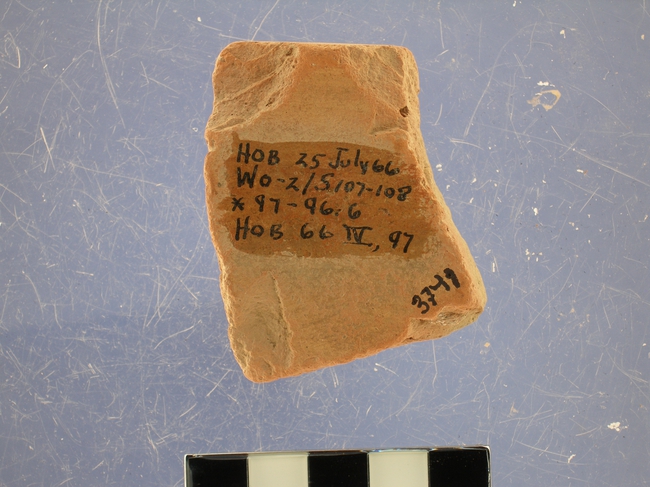 HOB 25 July 66
WO-2/S107-108
* 97-96.6
HOB 66 IV, 97
3749